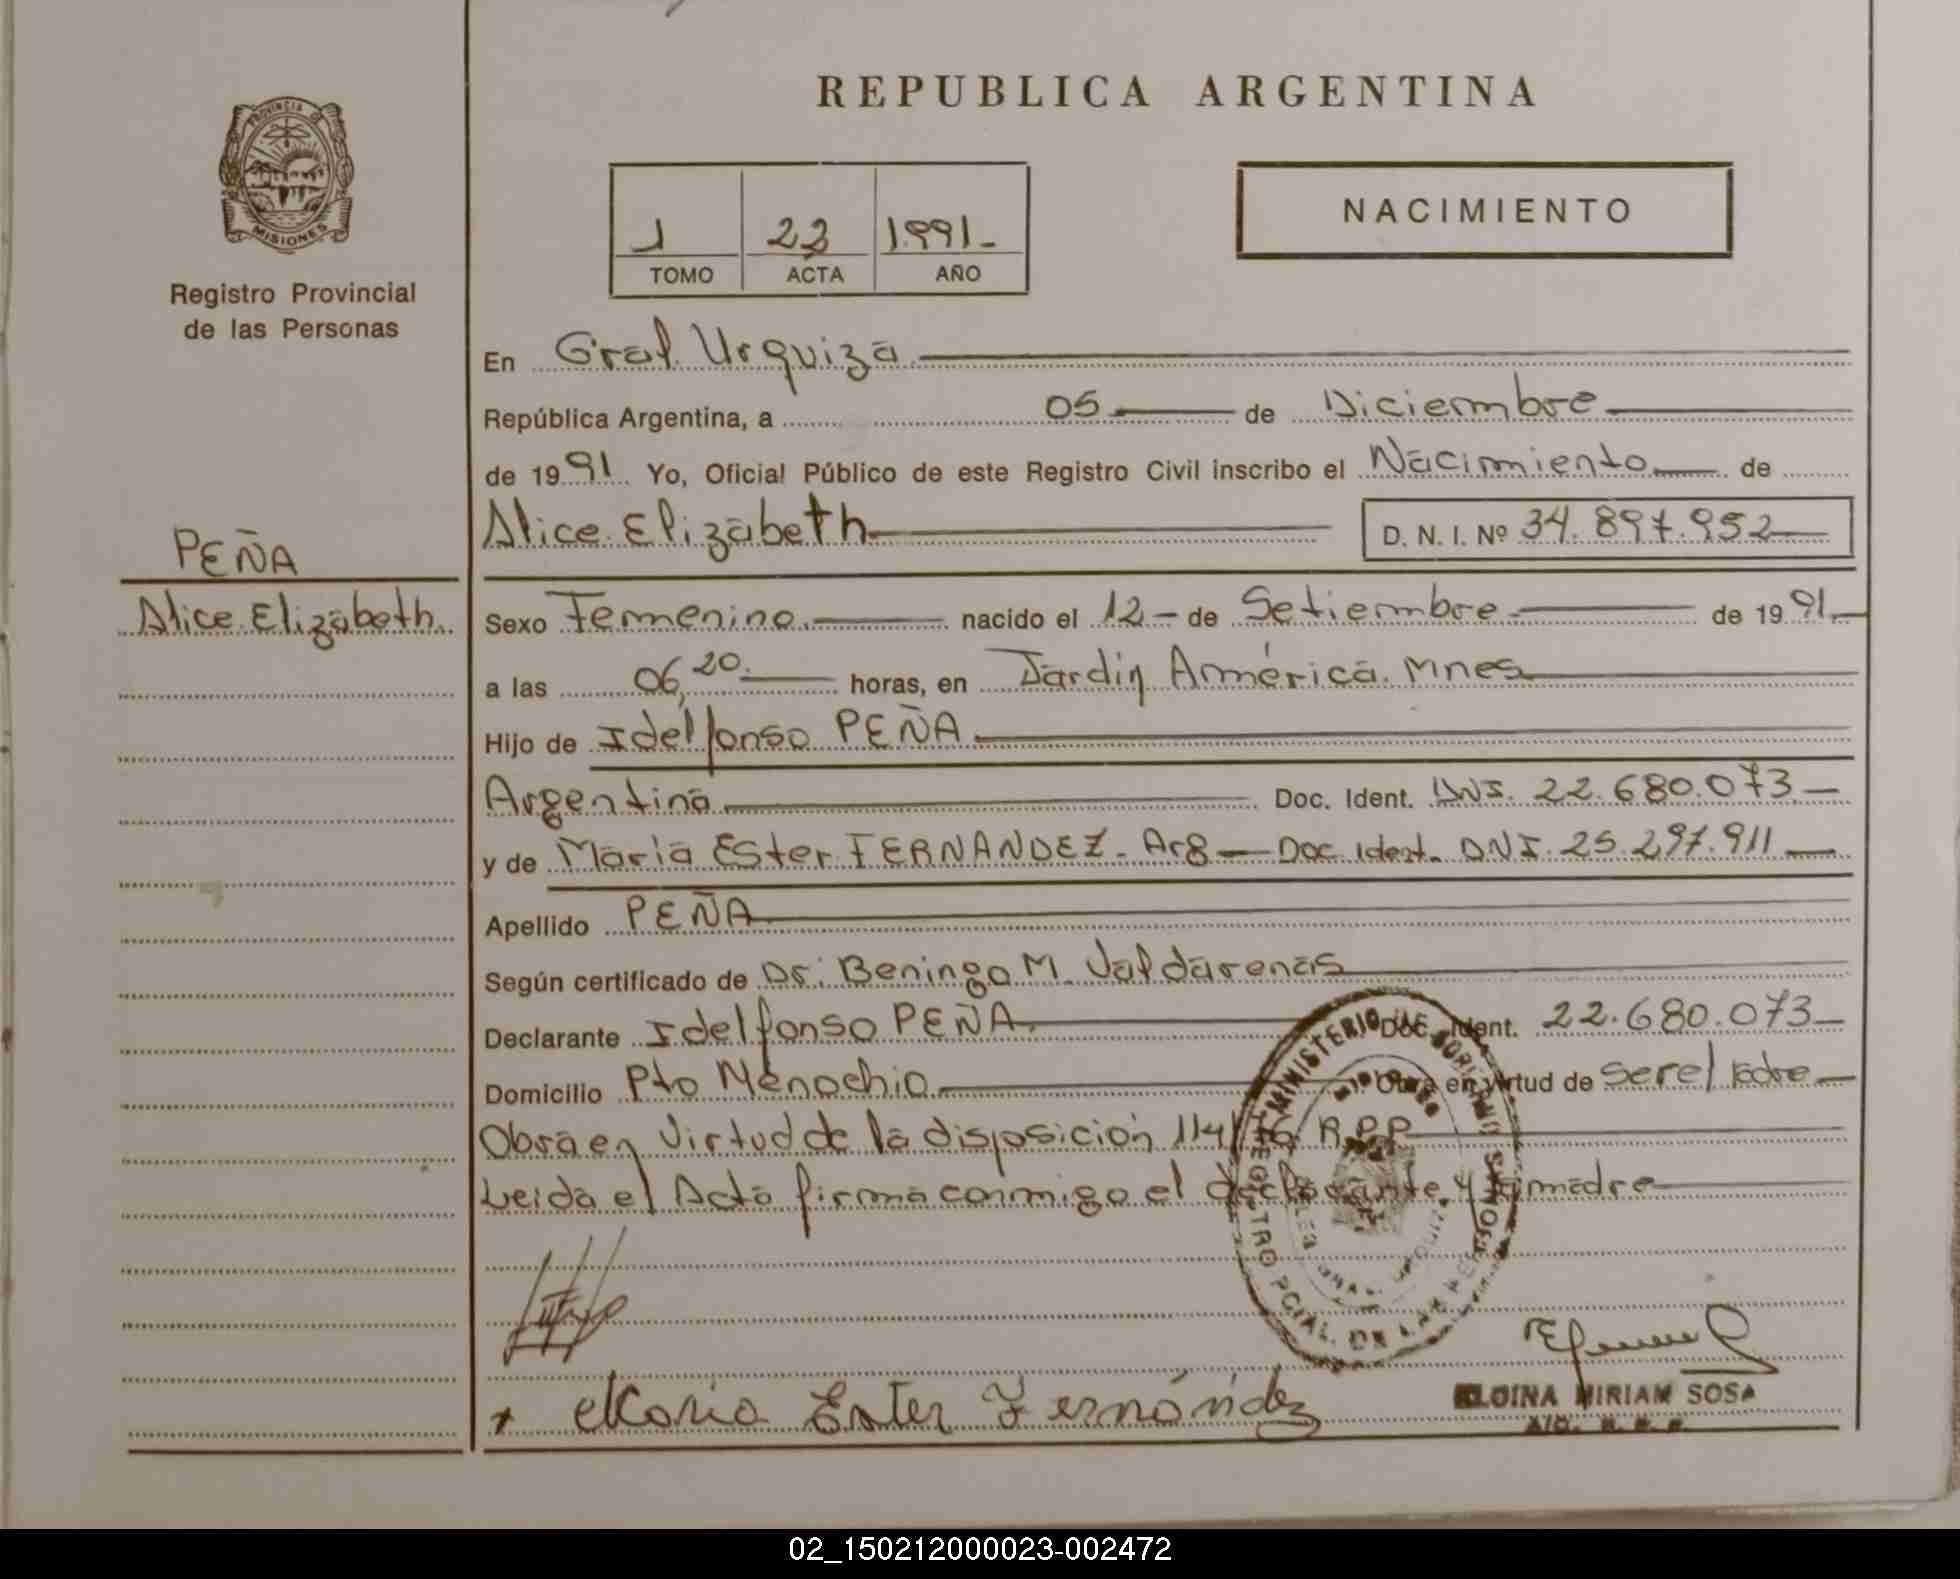 REPUBLICA ARGENTINA
PROVINCIA DE
MISIONES
Registro Provincial
de las Personas
1 22 1991-
TOMO ACTA AÑO
NACIMIENTO
En Gral. Urquiza
República Argentina, a 05 de Diciembre
de 1991 Yo, Oficial Público de este Registro Civil inscribo el Nacimiento de
Alice Elizabeth D. N. I. Nº 34.897.952
PEÑA
Alice Elizabeth
Sexo Femenino nacido el 12 - de Setiembre de 1991
a las 06,20 horas, en Jardin América. Mnes
Hijo de Idelfonso PEÑA
Argentina Doc. Ident. DNI. 22.680.073
y de Maria Ester FERNANDEZ - Arg - Doc Ident. DNI. 25.297.911
Apellido PEÑA
Según certificado de Dr. Beningo M. Valdarenas
Declarante Idelfonso PEÑA Doc. Ident. 22.680.073
Domicilio Pto Menochio Obra en virtud de ser el Padre
Obra en Virtud de la disposición R.P.P
Leida el Acta firma conmigo el declarante y la madre
MINISTERIO DE GOBIERNO
REGISTRO PCIAL. DE LAS PERSONAS
Maria Ester Fernández
ELOINA MIRIAM SOSA
02_150212000023-002472